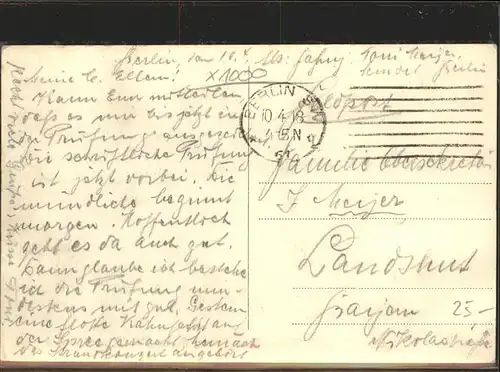 Berlin, den 10.4.
Meine l. Eltern!
x1000
Kann Euch mitteilen
daß es mir bis jetzt in
der Prüfung
die schriftliche Prüfung
ist jetzt vorbei. Die
mündliche beginnt
morgen. Hoffentlich
geht es da auch gut.
Dann glaube ich bestehe
ich die Prüfung min-
destens mit gut. Gestern
eine flotte Kahnfahrt auf
der Spree gemacht hernach
das Strandkonzert angehört
Toni Meijer
Berlin
BERLIN
10.4.18
4-5N
Feldpost
Familie Obersekretär
J. Meijer
Landshut
Bayern
25-
Nikolastraße